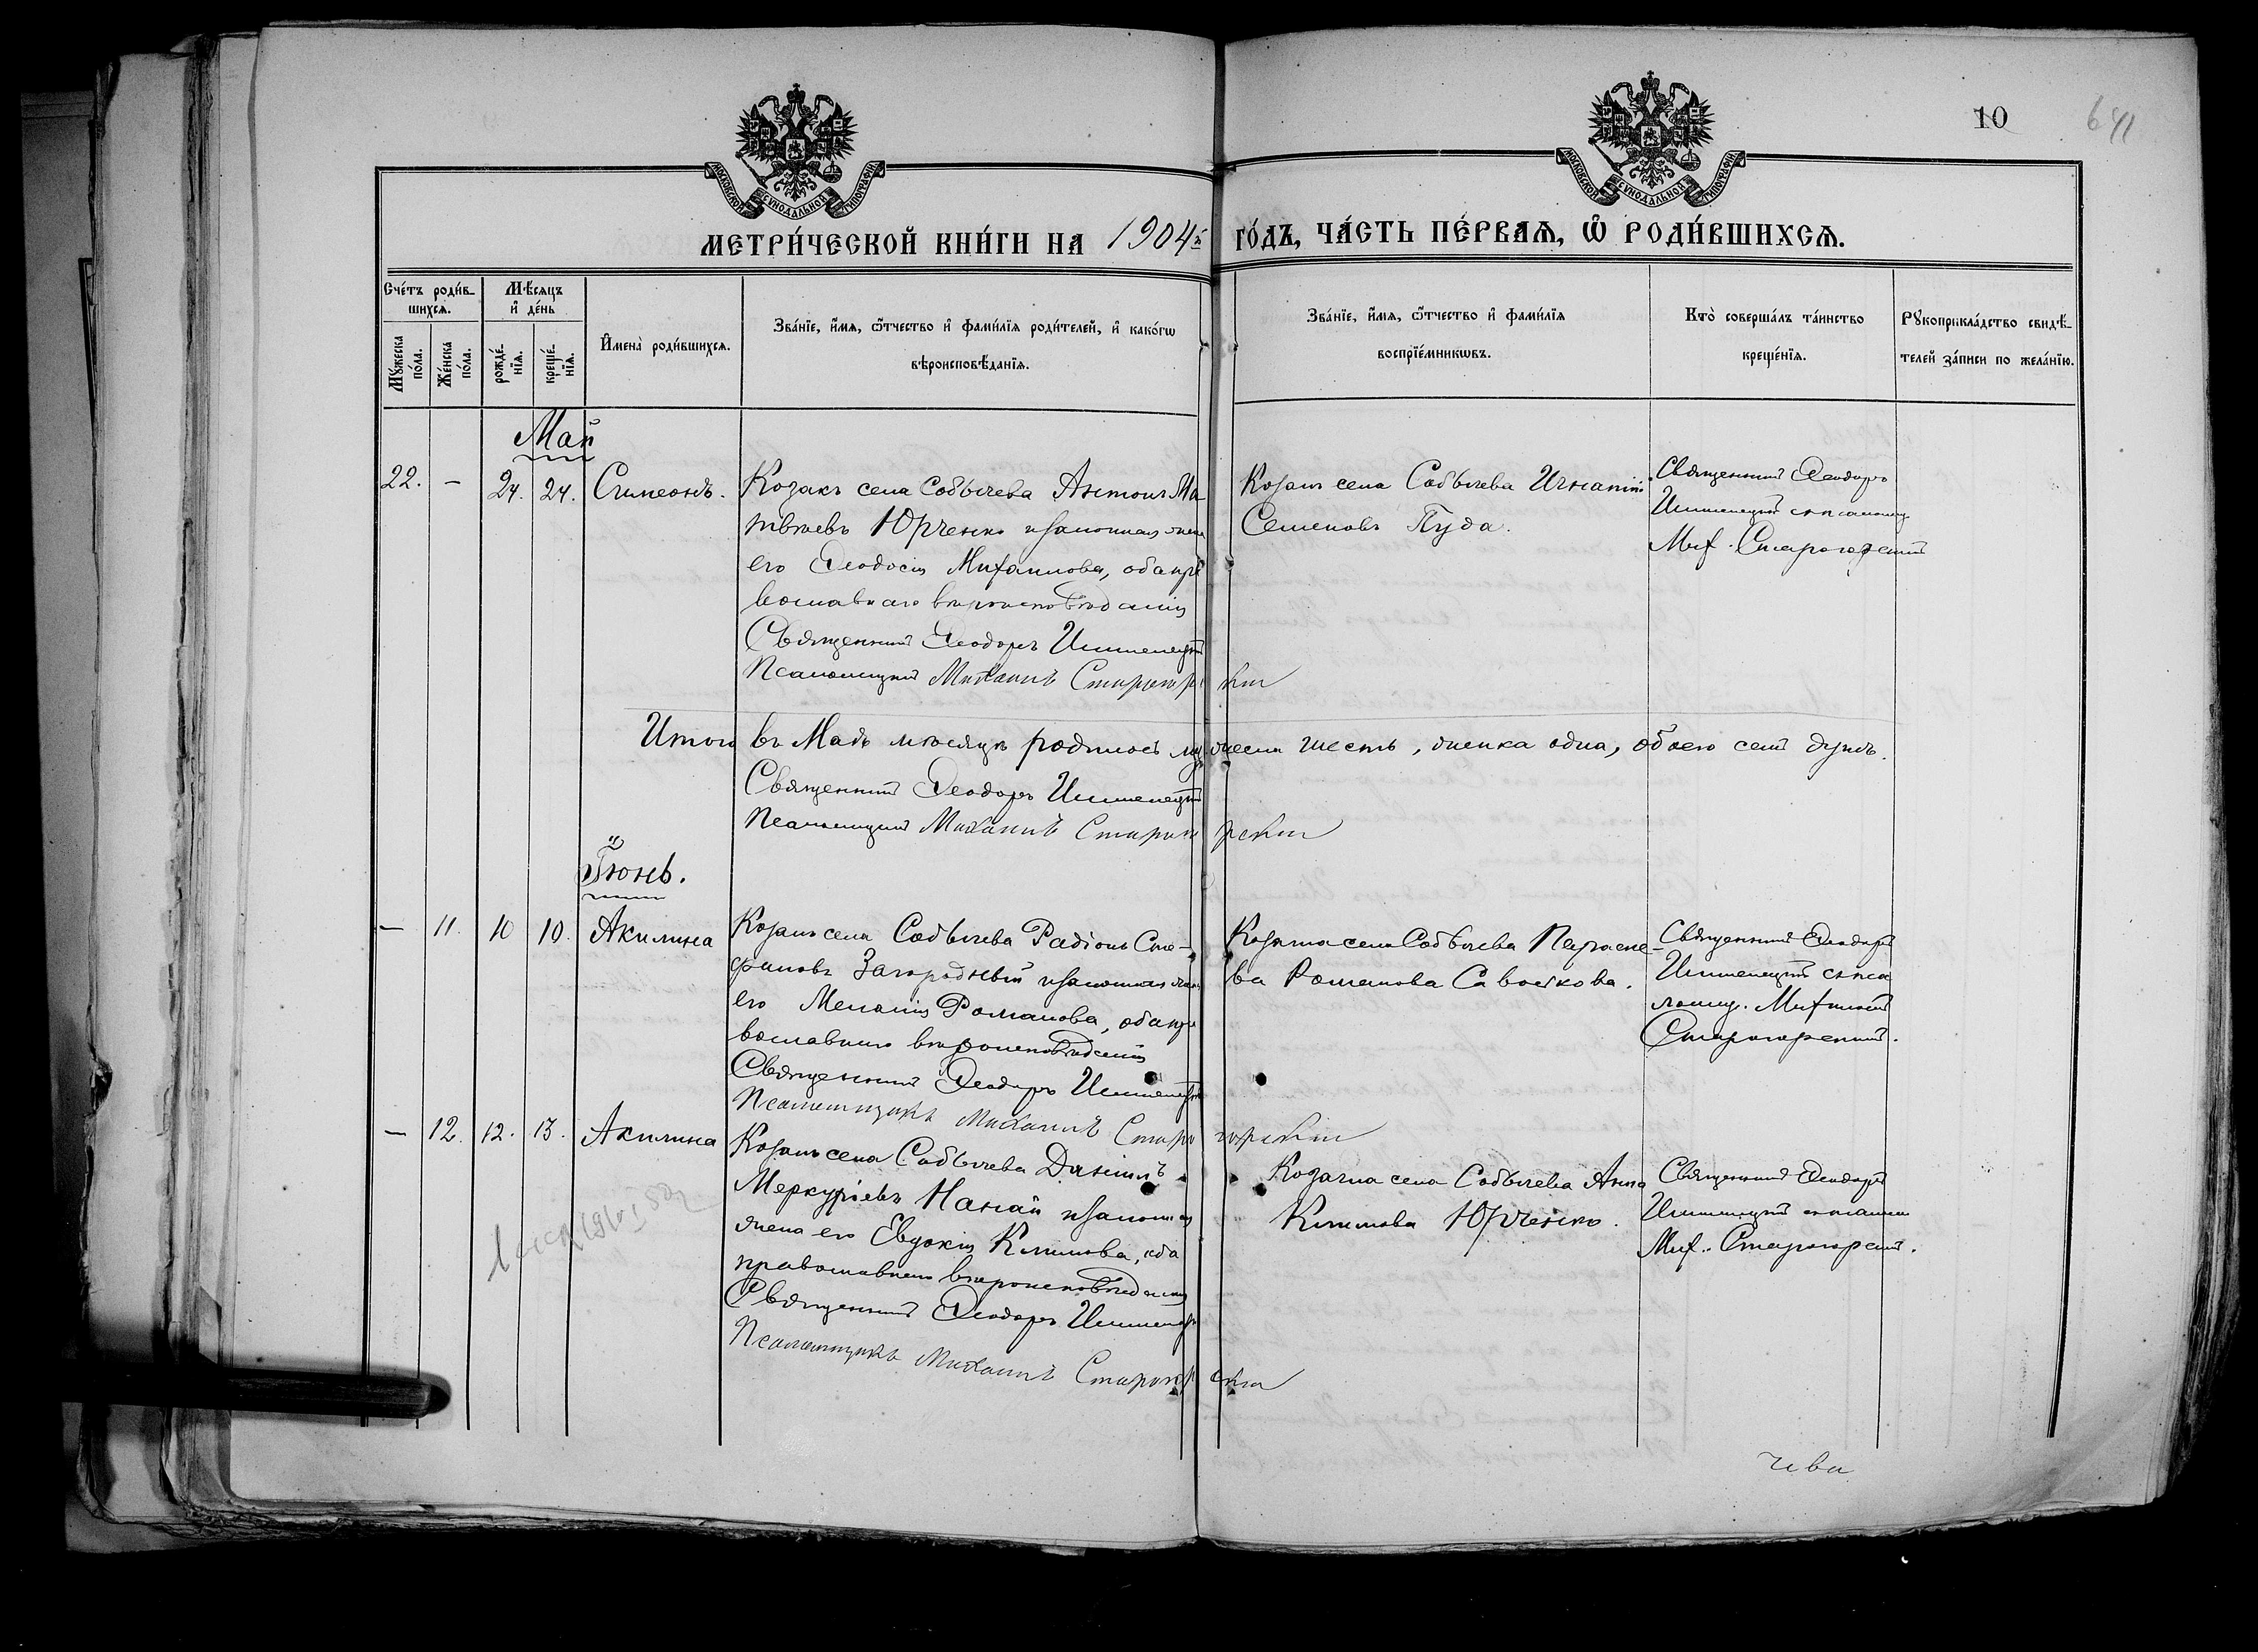 10
641
МОСКОВСКОЙ СѴНОДАЛЬНОЙ ТИПОГРАФІИ
МОСКОВСКОЙ СѴНОДАЛЬНОЙ ТИПОГРАФІИ
МЕТРИ́ЧЕСКОЙ КНИ́ГИ НА 1904й ГО́ДЪ, ЧА́СТЬ ПЕ́РВАѦ, Ѡ҆ РОДИ́ВШИХСѦ.
Сче́тъ роди́вшихсѧ.
Мꙋ́жеска по́ла.
Же́нска по́ла.
Мѣ́сѧцъ и҆ де́нь
рожде́нїѧ.
креще́нїѧ.
И҆мена̀ роди́вшихсѧ.
Зва́нїе, и҆́мѧ, ѻ҆́тчество и҆ фами́лїѧ роди́телей, и҆ како́гѡ вѣроисповѣ́данїѧ.
Зва́нїе, и҆́мѧ, ѻ҆́тчество и҆ фами́лїѧ воспрїе́мникѡвъ.
Кто̀ соверша́лъ та́инство креще́нїѧ.
Рꙋкоприкла́дство свидѣ́телей за́писи по жела́нїю.
Май
22. - 24. 24. Симеонъ.
Козакъ села Собычева Антонъ Ма-
твѣевъ Юрченко и законная жена
его Ѳеодосія Михаилова, оба пра
вославнаго вѣроисповѣданія
Священникъ Ѳеодоръ
Псаломщикъ Михаилъ Старогорскій
Козакъ села Собычева Игнатій
Семеновъ Пуда.
Священникъ Ѳеодоръ
съ псаломщ
Мих. Старогорскій
Итого въ Маѣ мѣсяцѣ родилось мужеска шесть, женска одна, обоего семь душъ.
Священникъ Ѳеодоръ
Псаломщикъ Михаилъ Старогорскій
Іюнь.
— 11. 10 10. Акилина
Козакъ села Собычева Радіонъ Сте-
фановъ Загородный и законная жена
его Меланія Романова, оба пра
вославнаго вѣроисповѣданія
Священникъ Ѳеодоръ
Псаломщикъ Михаилъ Старогорскій
Козачка села Собычева Параске-
ва Романова Савоськова.
Священникъ Ѳеодоръ
съ псал
ломщ. Михаилъ
Старогорскій.
— 12. 12. 13. Акилина
Козакъ села Собычева Даніилъ
Меркуріевъ Нанай и законная
жена его Евдокія Климова, оба
православнаго вѣроисповѣданія
Священникъ Ѳеодоръ
Псаломщикъ Михаилъ Старогорскій
Козачка села Собычева Анна
Климова Юрченко.
Священникъ Ѳеодоръ
съ псаломщ
Мих. Старогорскій.
чева